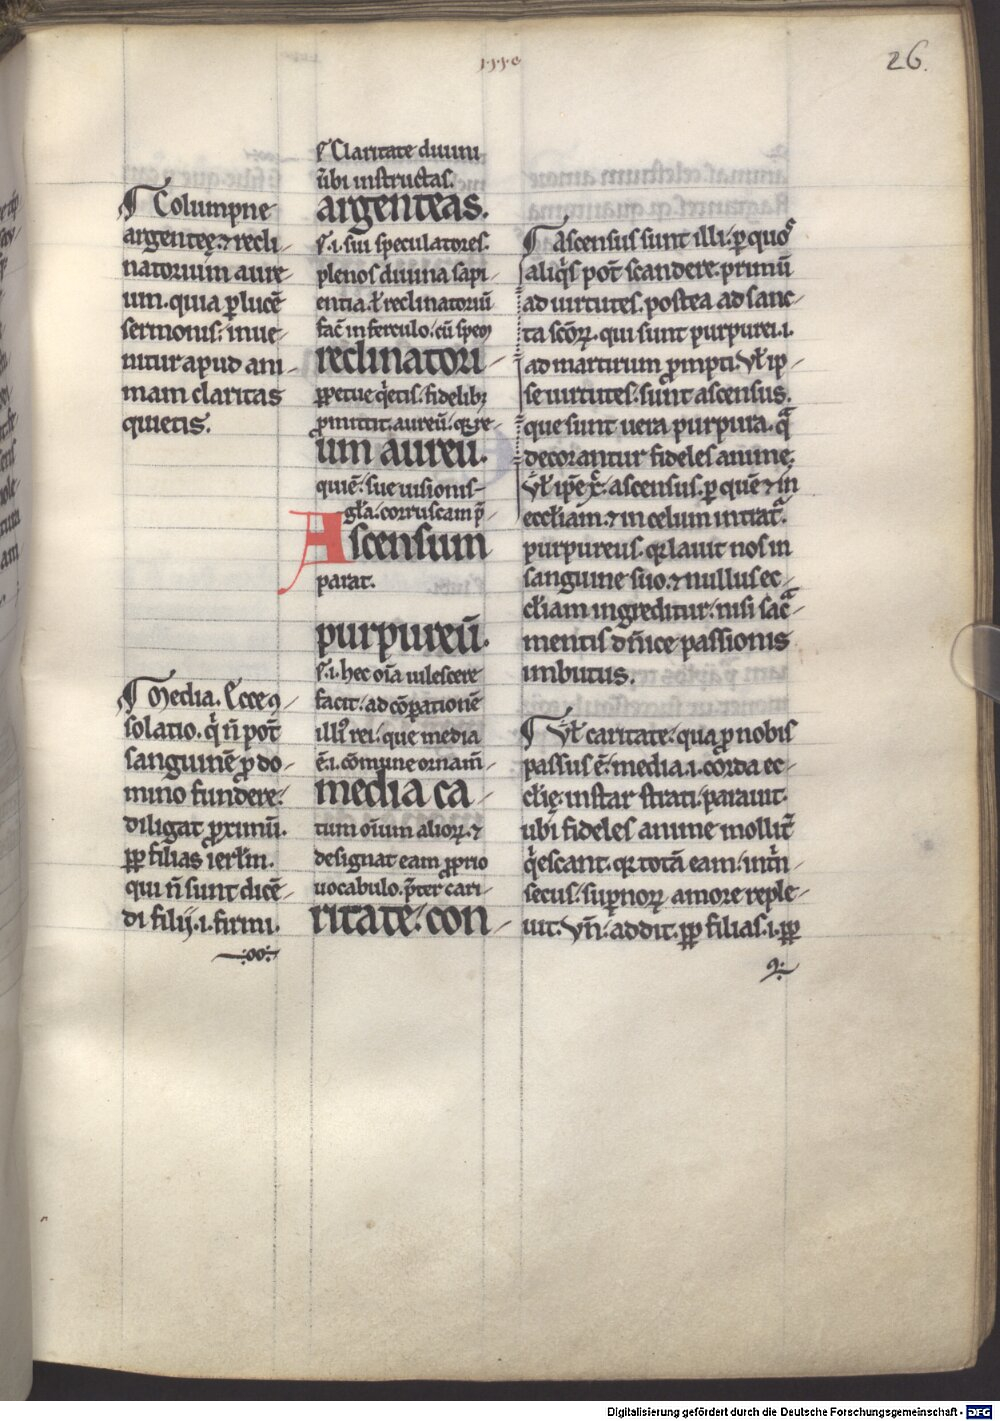 26.
¶ Columpne
argenteę. ⁊ recli-
natorium aure-
um. quia p̱ lucē
sermonis. inue-
nitur apud ani-
mam claritas
quietis.
¶ Media. Ecce ꝯ-
solatio. q̇ n̄ pot̄
sanguinē ꝓ do-
mino fundere.
diligat ꝓximū.
ꝓꝑ filias ierl̄m.
qui n̄ sunt dicē-
di filij .i. firmi.
Claritate diuini
ūbi instructas.
argenteas.
.i. sui speculatores.
plenos diuina sapi-
entia. ł reclinatoriū
fac̄ in ferculo. cū
reclinatori-
ꝑpetue q̇etis. fidelibꝫ
ꝓmittit. aureū.
um aureū.
quiē. siue uisionis
gl̄a. corruscam
Ascensum
parat.
purpureū.
.i. hec oīa uilescere
facit. ad cōꝑationē
illiꝰ rei. que media
ē .i. cōmune ornam̄-
media ca-
tum oīum alioꝝ. ⁊
designat eam ꝓprio
uocabulo. p̄ter cari-
ritate. con-
¶ Ascensus sunt illi. ꝑ quoˢ
aliq̇s pot̄ scandere. primū
ad uirtutes. postea ad sanc-
ta scōꝝ. qui sunt purpurei .i.
ad martirium ꝓmpti. Vł ip-
se uirtutes. sunt ascensus.
que sunt uera purpura. qᷓ
decorantur fideles anime.
Vł ip̄e xp̄c. ascensus. ꝑ quē ⁊ in
eccłiam. ⁊ in celum intrat̄.
purpureus. qꝛ lauit nos in
sanguine suo. ⁊ nullus ec-
cłiam ingreditur. nisi sacᷓ-
mentis dn̄ice passionis
imbutus.
¶ Vł caritate. qua ꝓ nobis
passus ē. media .i. corda ec-
cłię. instar strati. parauit.
ubi fideles anime mollit̄
q̇escant. qꝛ totā eam. int̄n-
secus. suꝑnoꝝ amore reple-
uit. Vn̄. addit. ꝓꝑ filias .i. ꝓꝑ
Digitalisierung gefördert durch die Deutsche Forschungsgemeinschaft - DFG